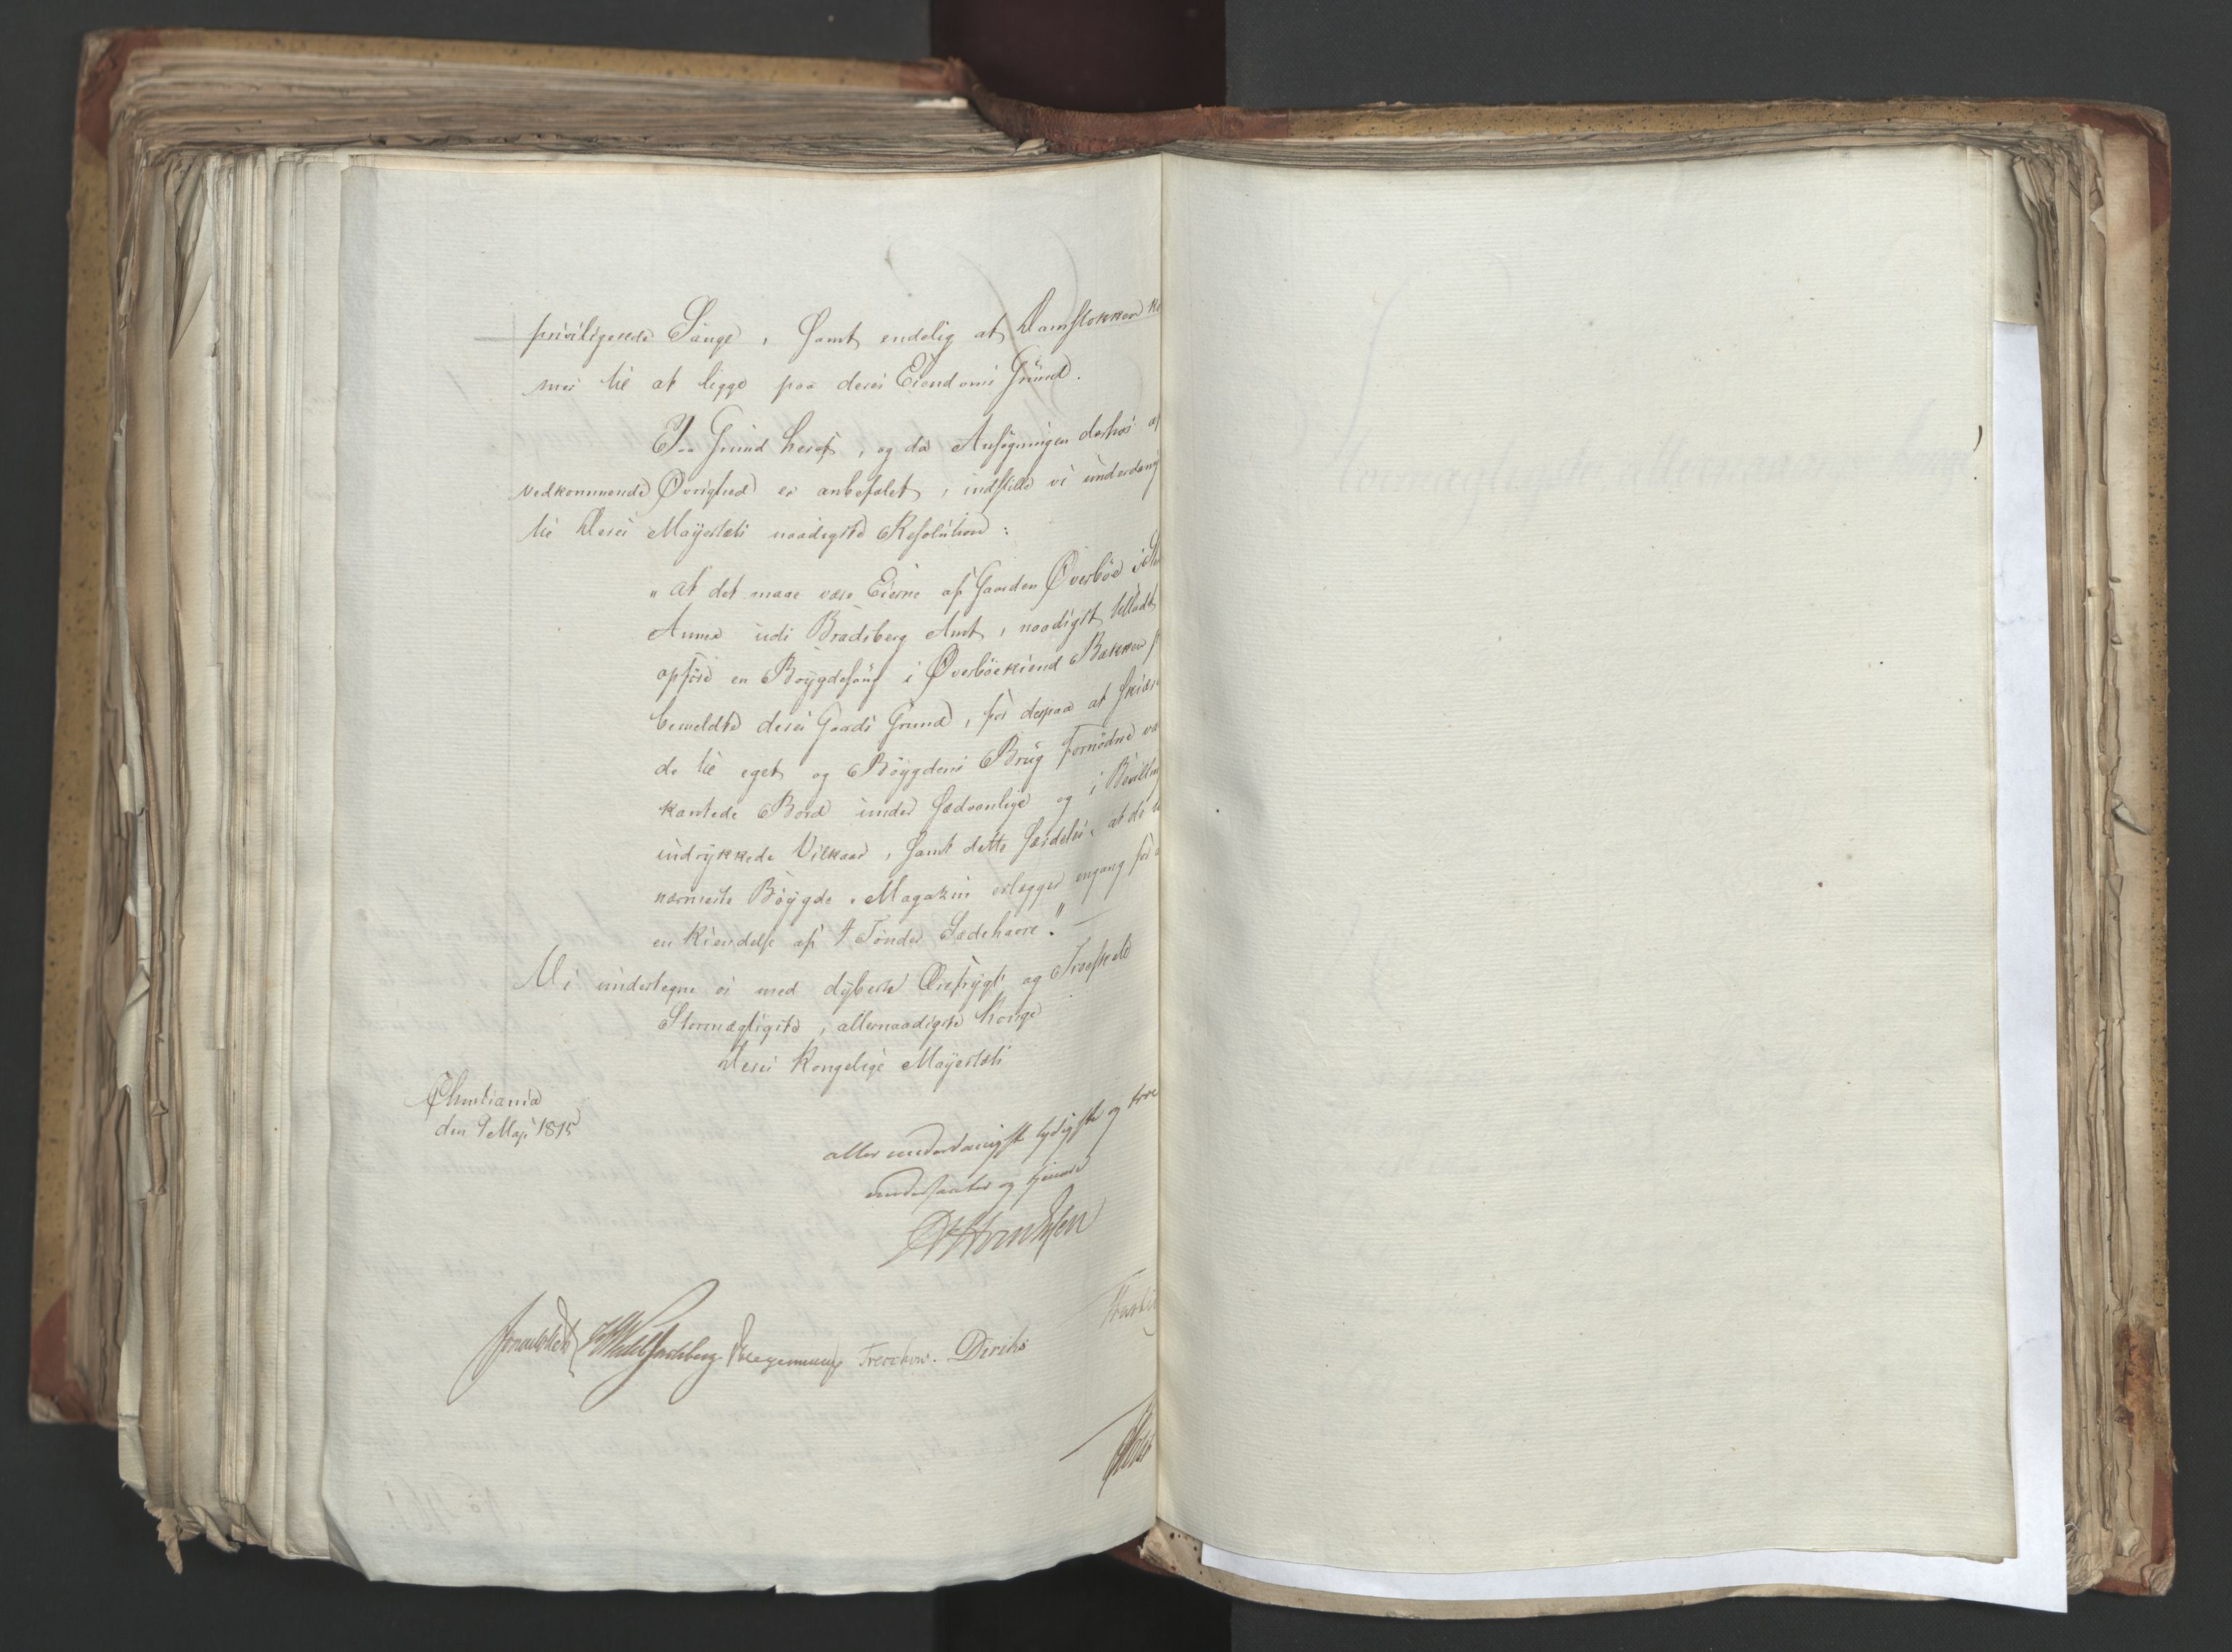 priviligerede Sauge, samt endelig at Damstokken ko
mer til at ligge paa deres Eiendoms Grund.
Paa Grund heraf, og da Ansøgningen derhos af
vedkommende Øvrighed er anbefalet, indstille vi underdanig
til Deres Majestæts naadigste Resolution:
„at det maae være Eierne af Gaarden Øverbøe i
Amne udi Bradsberg Amt, naadigst tilladt
opføre en Bøygdesaug i Øverbøekiend Bækken
bemeldte deres Gaards Grund, for derpaa at skiære
de til eget og Bøygdens Brug fornødne va
kantede Bord under sædvanlige og i Bevilling
indrykkede Vilkaar, samt dette særdeles, at de
nærmeste Bøygde-Magazin erlægger engang for
en Kiendelse af 4 Tønder Sædehavre."
Vi undertegne os med dybeste Ærefrygt og Troeskab
Stormægtigste, allernaadigste Konge
Deres Kongelige Majestæts
Christiania
den 9 Maji 1815
allerunderdanigste lydigste og troe
undersaatter og tjenere
Wedel Jarlsberg Treschow. Diriks